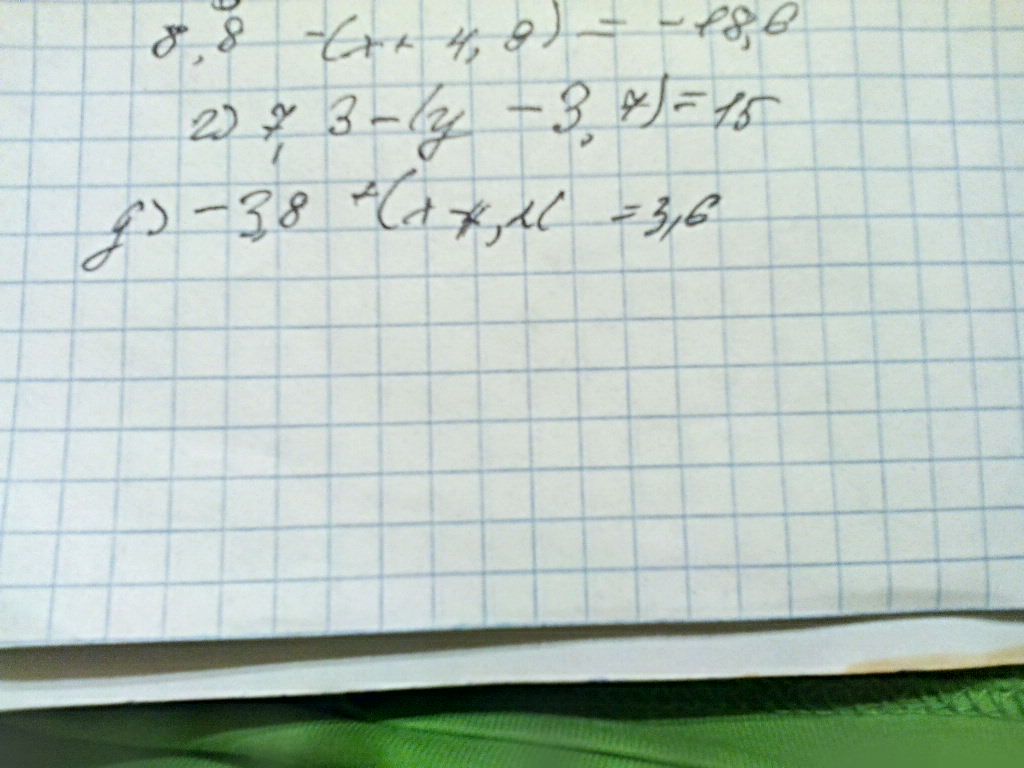 8,8 -(x+ 4,9) = -18,6
г) 7,3-(y -3,7)=15
д) -3,8 +(x -4,2( =3,6